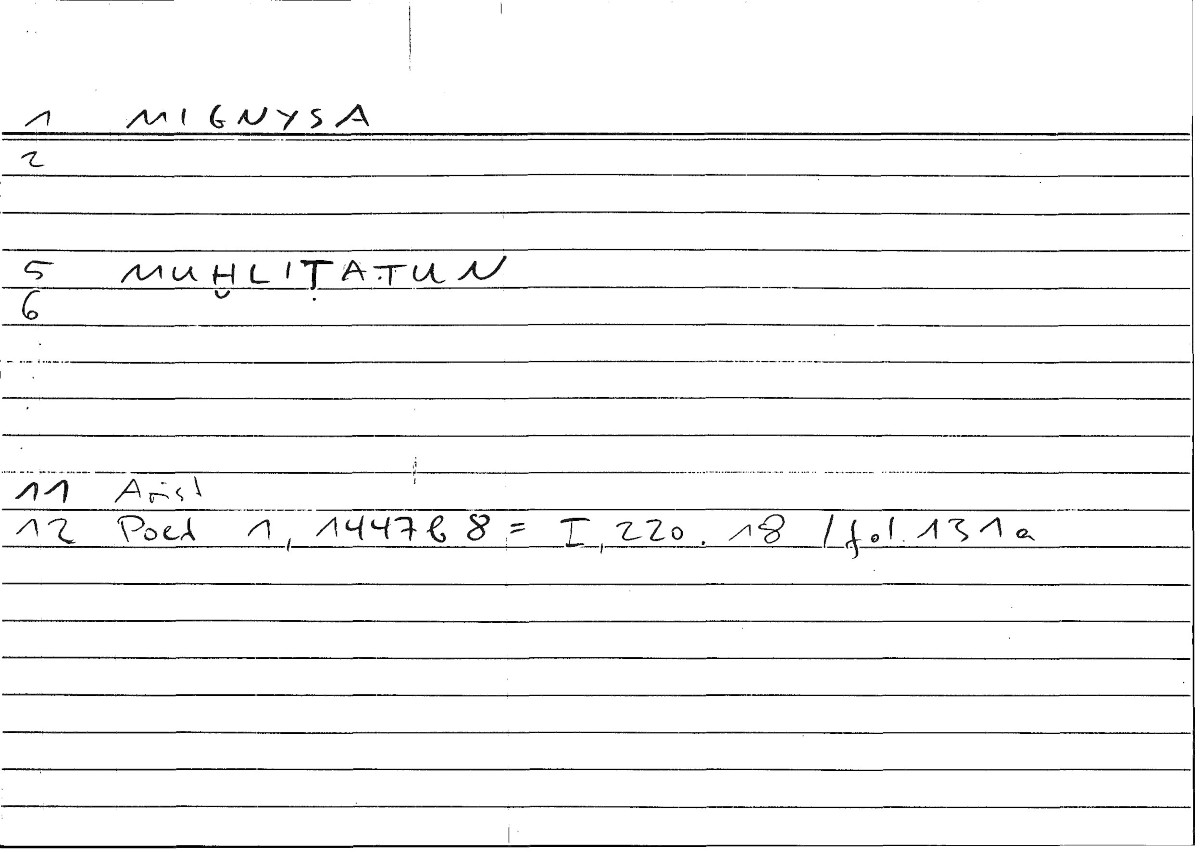 1 MIGNYSA
2
5 MUḪLIṬATUN
6
11 Arist
12 Poet 1, 1447b 8 = I, 220. 18 / fol. 131a